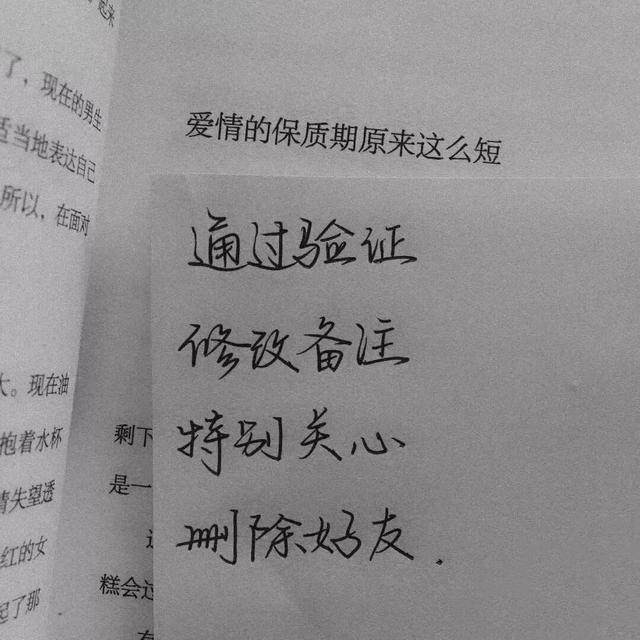 了，现在的男生
适当地表达自己
所以，在面对
大。现在油
抱着水杯
情失望透
红的女
起了那
爱情的保质期原来这么短
通过验证
修改备注
特别关心
删除好友.
剩下
是一
这
糕会过